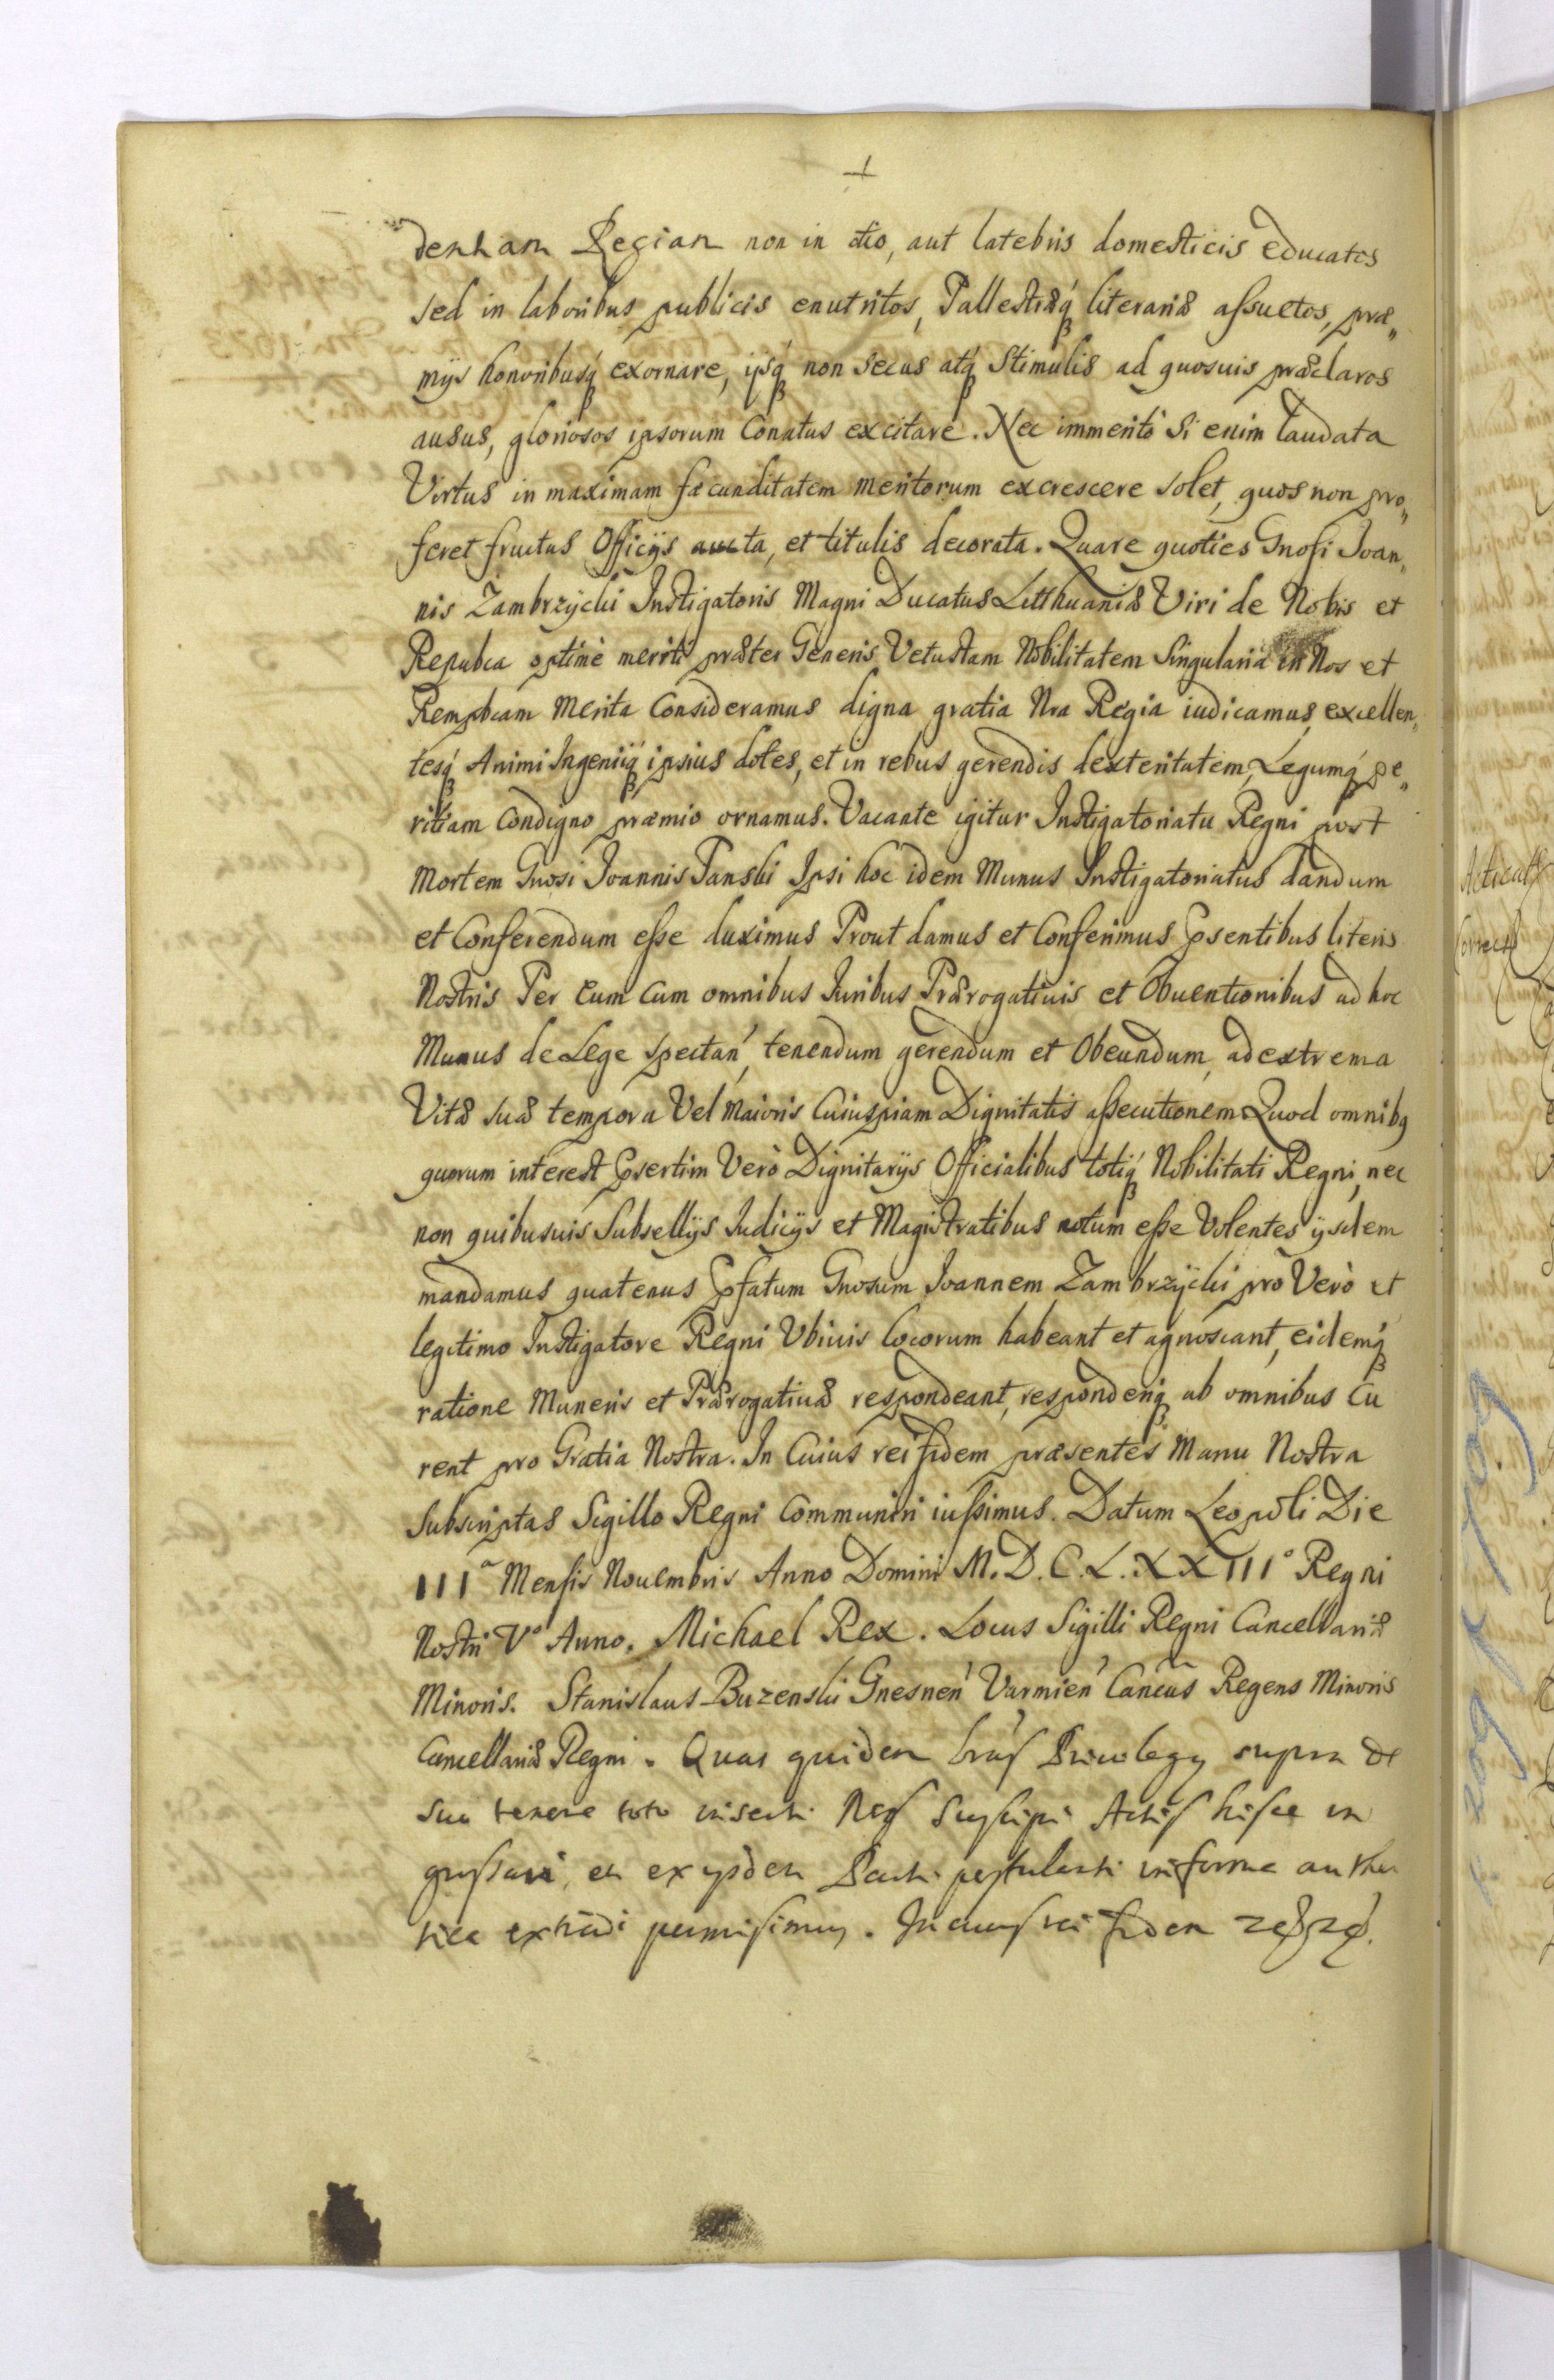 denham Regiam non in otio, aut latebris domesticis educatos
sed in laboribus publicis enutritos, Pallestræq́ literariæ assuetos, præ„
mijs honoribusq́ exornare, ijsq́ non secus atq́ stimulis ad quosuis præclaros
ausus, gloriosos ipsorum Conatus excitare. Nec immeritò Si enim laudata
Virtus in maximam fæcunditatem meritorum excrescere solet, quos non pro„
feret fructus Officijs aucta, et titulis decorata. Quare quoties Gnosi Joan„
nis Zambrzÿcki Instigatoris Magni Ducatus Litthuaniæ Viri de Nobis et
Repubca optimè meriti præter Generis Vetustam Nobilitatem Singularia in Nos et
Rempbcam Merita Consideramus digna gratia Nra Regia iudicamus, excellen„
tesq́ Animi Ingeniiq́ ipsius dotes, et in rebus gerendis dexteritatem, Legumq́ pe„
ritiam Condigno præmio ornamus. Vacante igitur Instigatoriatu Regni post
Mortem Gnosi Joannis Tanski Ipsi hoc idem Munus Instigatoriatus dandum
et Conferendum esse duximus Prout damus et Conferimus Psentibus literis
Nostris Per Eum Cum omnibus Iuribus Prærogatiuis et Obuentionibus ad hoc
Munus de Lege spectań, tenendum gerendum et Obeundum, ad extrema
Vitæ suæ tempora Vel Maioris Cuiuspiam Dignitatis assecutionem Quod omnibq
quorum interest Psertim Verò Dignitarijs Officialibus totiq́ Nobilitati Regni, nec
non quibusuis Subsellijs Iudicijs et Magistratibus notum esse Volentes ijsdem
mandamus quatenus Pfatum Gnosum Joannem Zambrzÿcki pro Verò et
legitimo Instigatore Regni Vbiuis locorum habeant et agnoscant, eidemq́
ratione Muneris et Prærogatiuæ respondeant, responderiq́ ab omnibus Cu
rent pro Gratia Nostra. In Cuius rei fidem præsentes Manu Nostra
Subscriptas Sigillo Regni Communiri iussimus. Datum Leopoli Die
IIIa Mensis Nouembris Anno Domini M. D. C. L. XXIIIo Regni
Nostri Vo Anno. Michael Rex. Locus Sigilli Regni Cancellariæ
Minoris. Stanislaus Buzenski Gnesneń Varmień Cańcus Regens Minoris
Cancellariæ Regni. Quas quidem lras Priuilegy supra de
suo tenore toto inserti Nos Suscipi Actis hisce in
grossari, et ex ijsdem Parti postulanti in forma authen
tica extradi permisimus. In cuius rei fidem